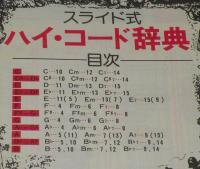 スライド式
ハイ・コード辞典
目次
C C…10 Cm…12 C7…14
C#…10 C#m…12 C#7…14
D D…11 Dm…13 D7…15
E♭…11 E♭m…13 E♭7…15
E E…11(5) Em…13(7) E7…15(5)
F F…4 Fm…6 F7…8
F#…4 F#m…6 F#7…8
G G…4 Gm…6 G7…8
A♭…4 A♭m…6 A♭7…9
A A…5(11) Am…7(13) A7…9(15)
B♭…5 B♭m…7 B♭7…9